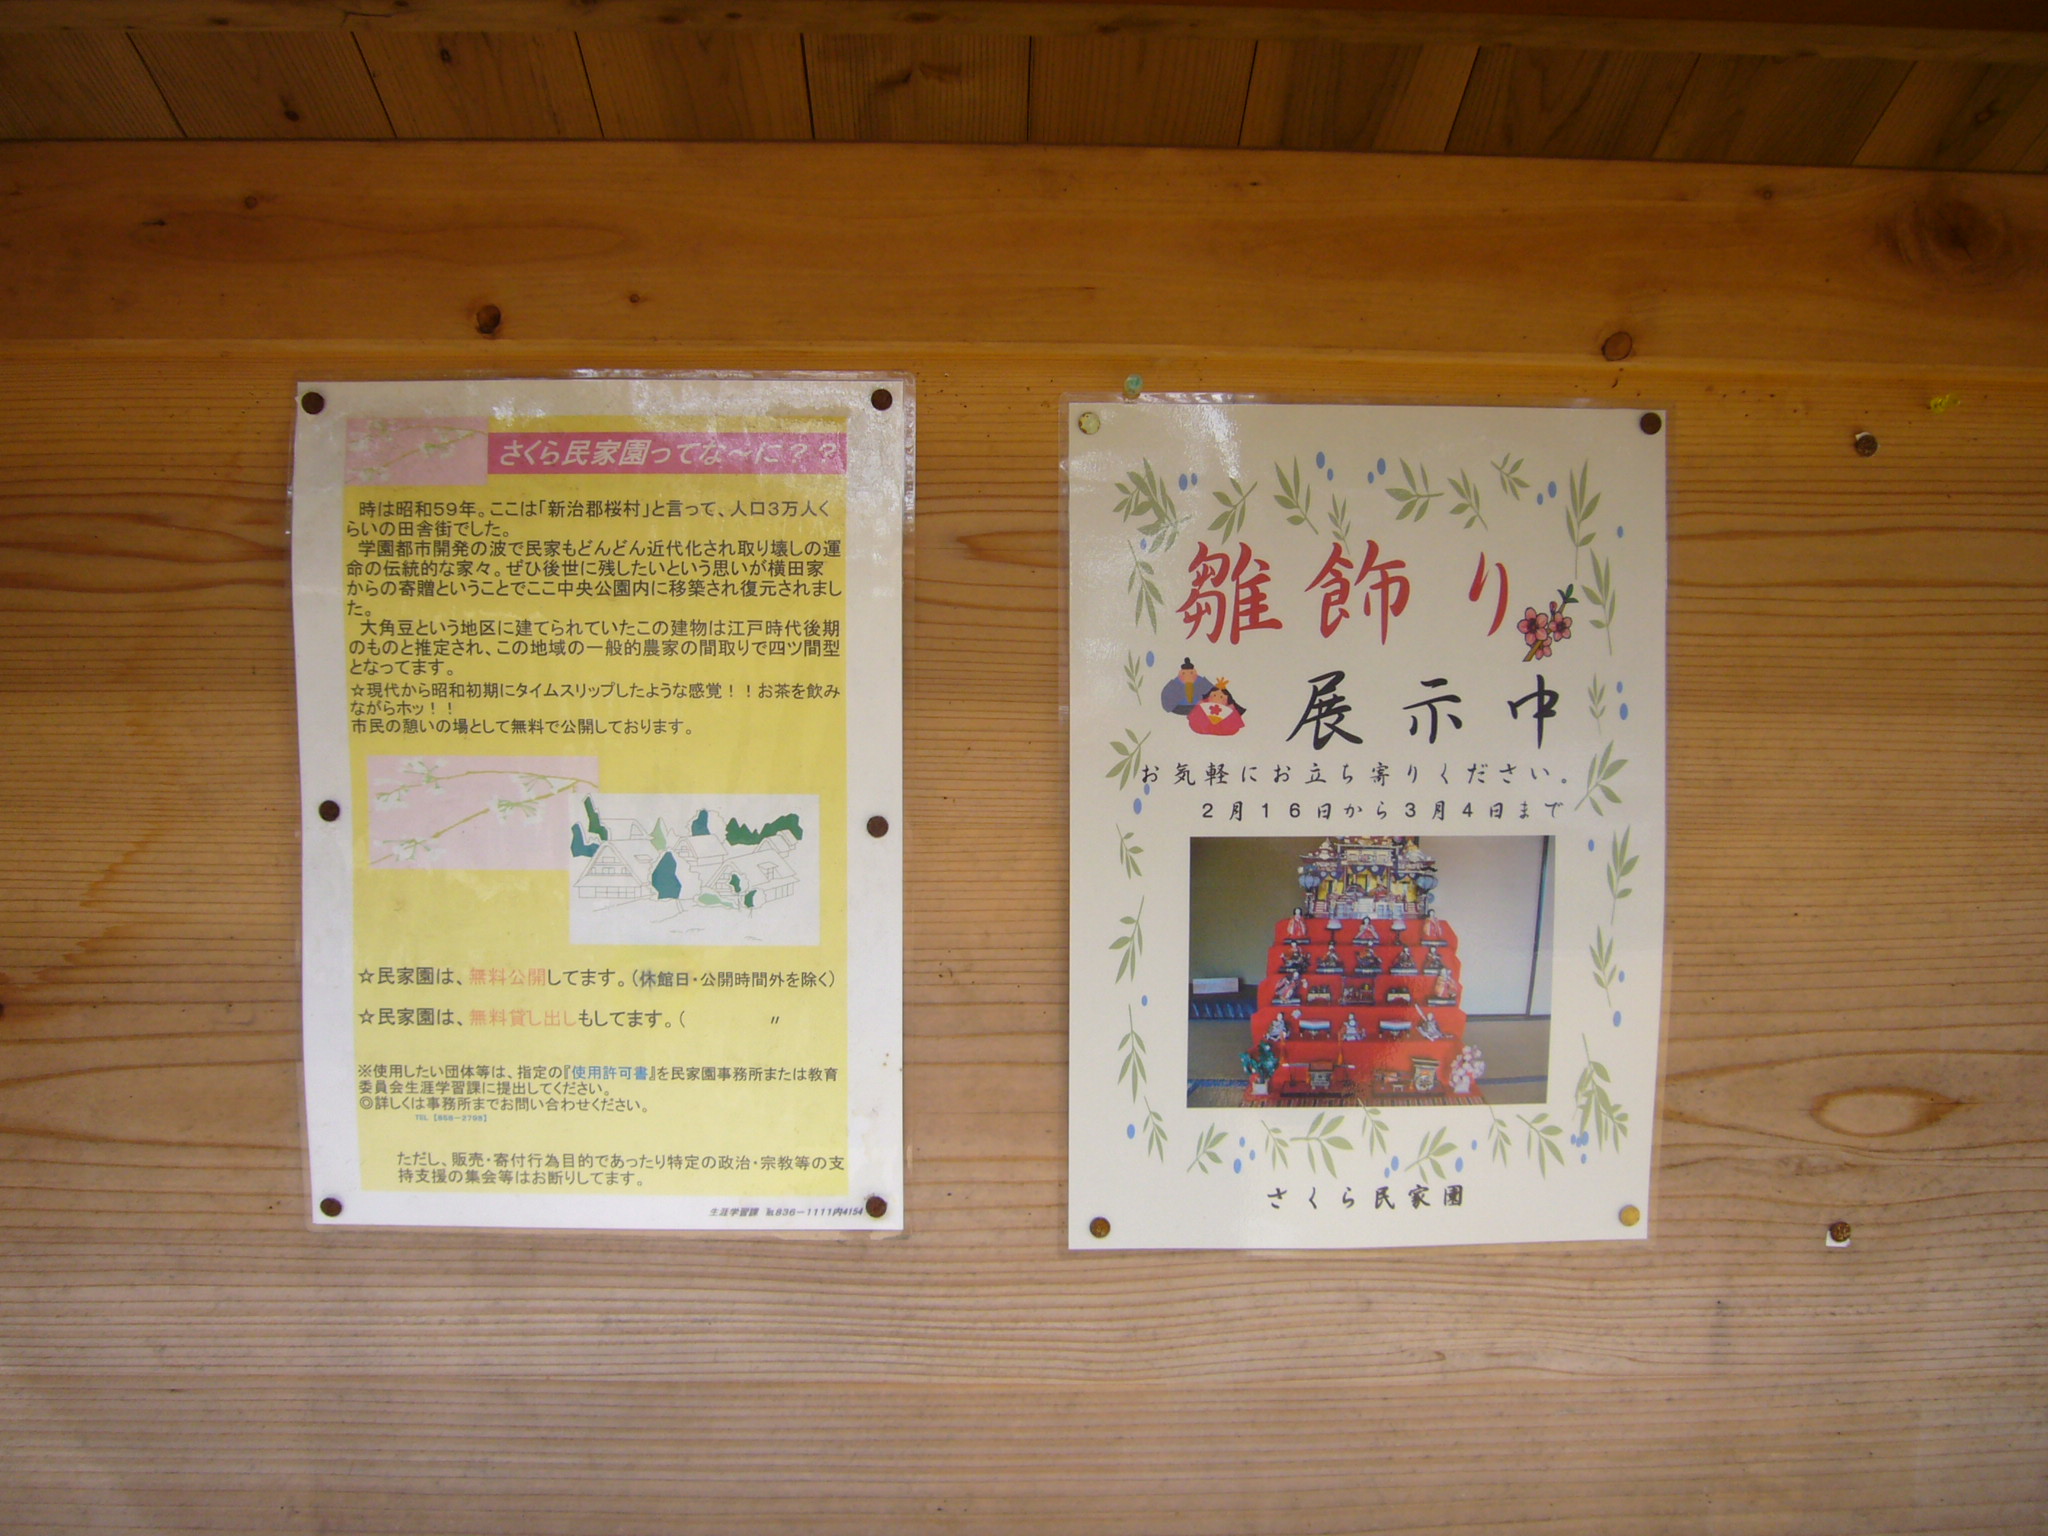 さくら民家園ってな～に？？
時は昭和59年。ここは「新治郡桜村」と言って、人口3万人く
らいの田舎街でした。
学園都市開発の波で民家もどんどん近代化され取り壊しの運
命の伝統的な家々。ぜひ後世に残したいという思いが横田家
からの寄贈ということでここ中央公園内に移築され復元されまし
た。
大角豆という地区に建てられていたこの建物は江戸時代後期
のものと推定され、この地域の一般的農家の間取りで四ツ間型
となってます。
☆現代から昭和初期にタイムスリップしたような感覚！！お茶を飲み
ながらホッ！！
市民の憩いの場として無料で公開しております。
☆民家園は、無料公開してます。（休館日・公開時間外を除く）
☆民家園は、無料貸し出しもしてます。（　　　　　〃
※使用したい団体等は、指定の『使用許可書』を民家園事務所または教育
委員会生涯学習課に提出してください。
◎詳しくは事務所までお問い合わせください。
TEL【858-2798】
ただし、販売・寄付行為目的であったり特定の政治・宗教等の支
持支援の集会等はお断りしてます。
生涯学習課 ℡836-1111内4154
雛飾り
展示中
お気軽にお立ち寄りください。
2月16日から3月4日まで
さくら民家園